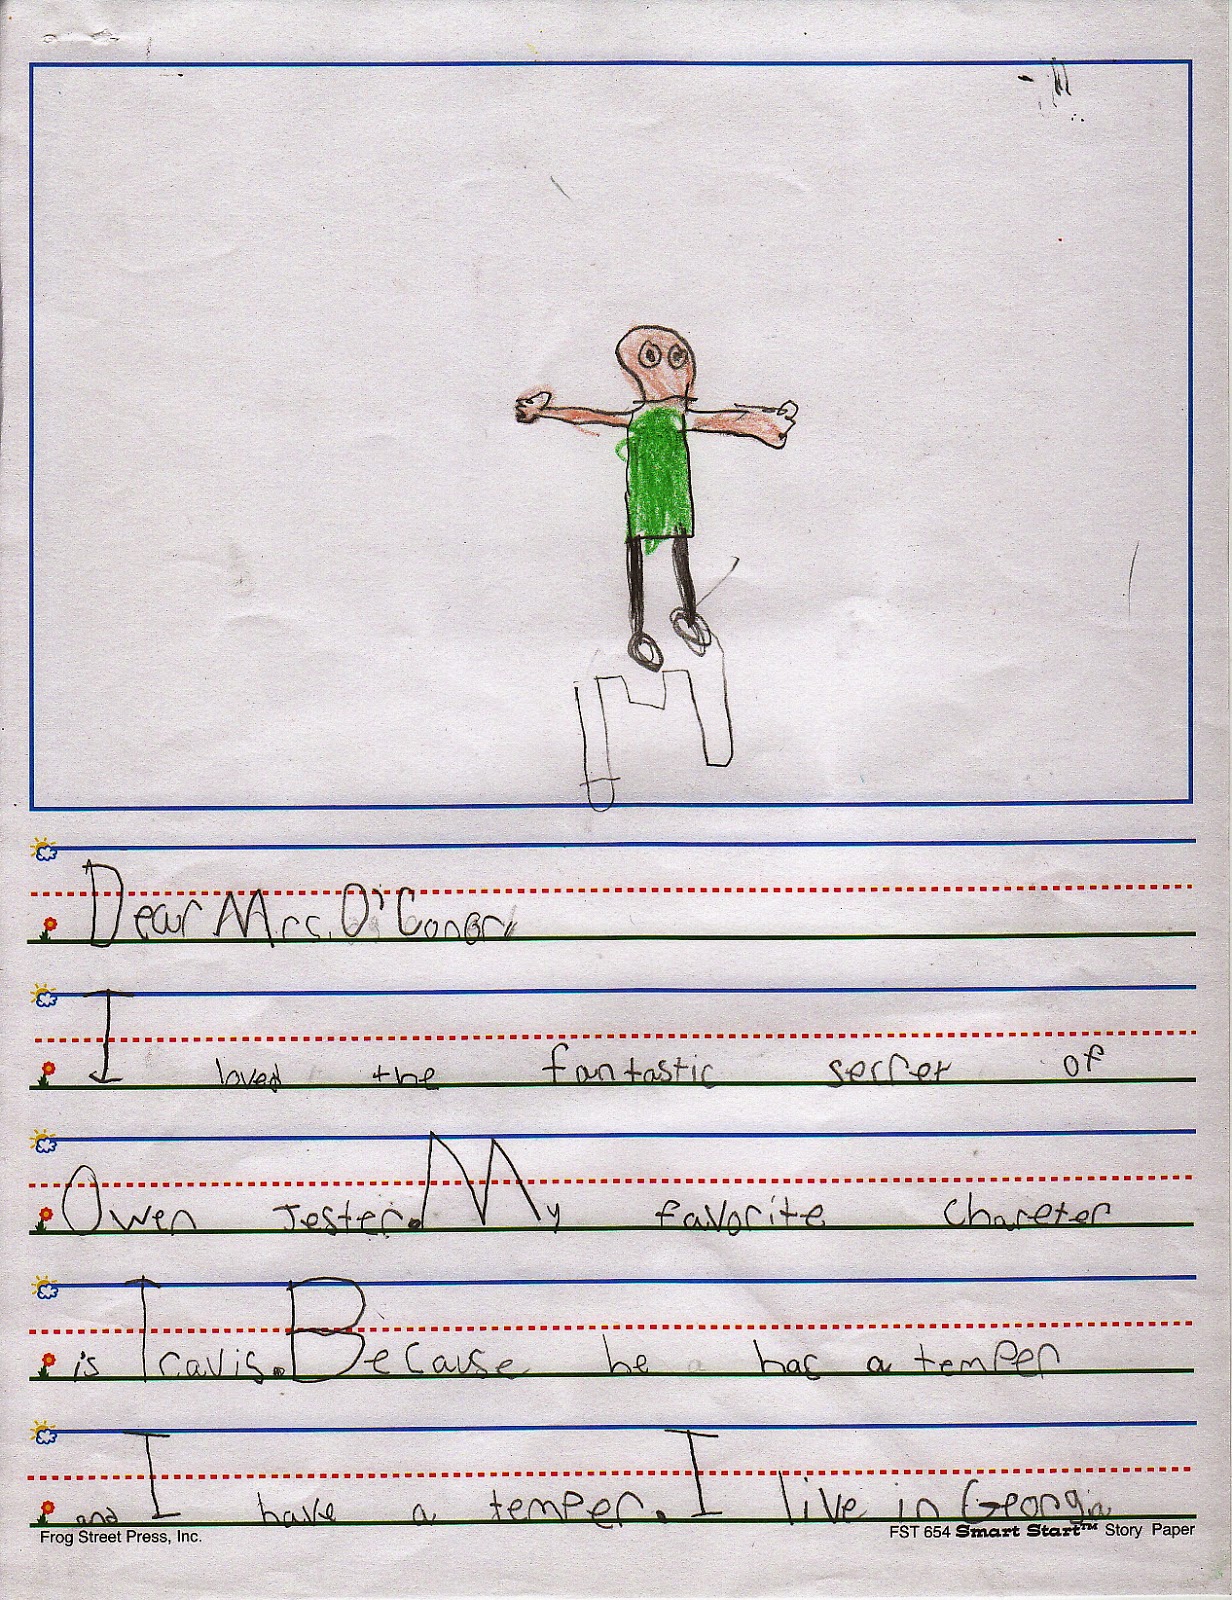 Dear Mrs. O'Conor,
I loved the fantastic secret of
Owen Jester. My favorite chareter
is Travis. Because he has a temper
and I have a temper. I live in Georgia
Frog Street Press, Inc.
FST 654 Smart Start™ Story Paper